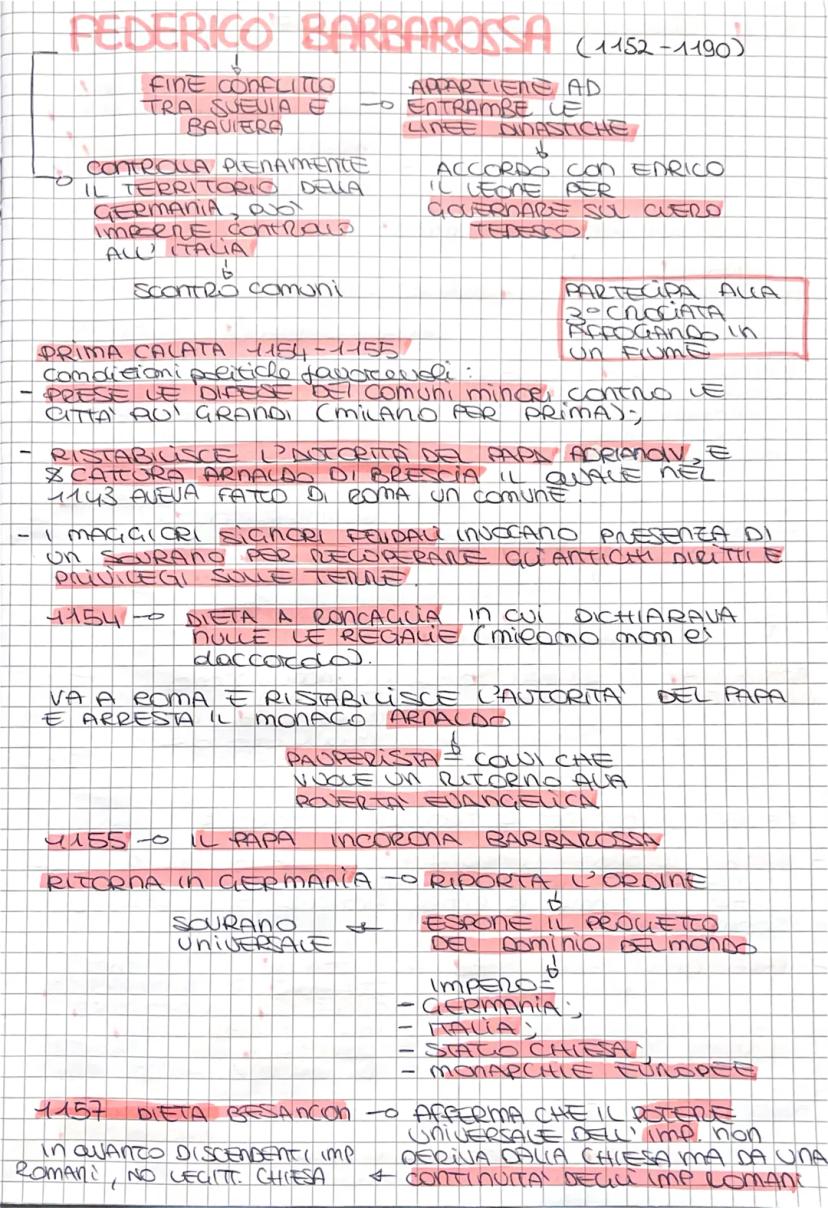 FEDERICO BARBAROSSA (1152-1190)
FINE CONFLITTO
TRA SVEVIA E
BAVIERA
APPARTIENE AD
ENTRAMBE LE
LINEE DINASTICHE
CONTROLLA PIENAMENTE
IL TERRITORIO DELLA
GERMANIA, PUÒ
IMPORRE CONTROLLO
ALL'ITALIA
SCONTRO COMUNI
ACCORDO CON ENRICO
IL LEONE PER
GOVERNARE SUL CLERO
TEDESCO.
PARTECIPA ALLA
3° CROCIATA
AFFOGANDO IN
UN FIUME
PRIMA CALATA 1154-1155
Condizioni politiche favorevoli:
- PRESE LE DIFESE DEI COMUNI MINORI CONTRO LE
CITTÀ PIÙ GRANDI (MILANO PER PRIMA);
- RISTABILISCE L'AUTORITÀ DEL PAPA ADRIANO IV, E
CATTURA ARNALDO DI BRESCIA IL QUALE NEL
1143 AVEVA FATTO DI ROMA UN COMUNE.
- I MAGGIORI SIGNORI FEUDALI INVOCANO PRESENZA DI
UN SOVRANO PER RECUPERARE GLI ANTICHI DIRITTI E
PRIVILEGI SULLE TERRE.
1154 → DIETA A RONCAGLIA IN CUI DICHIARAVA
NULLE LE REGALIE (milano non è
daccordo).
VA A ROMA E RISTABILISCE L'AUTORITA' DEL PAPA
E ARRESTA IL MONACO ARNALDO
PAUPERISTA = COLUI CHE
VUOLE UN RITORNO ALLA
POVERTA' EVANGELICA
1155 → IL PAPA INCORONA BARBAROSSA
RITORNA IN GERMANIA → RIPORTA L'ORDINE
SOVRANO
UNIVERSALE
←
ESPONE IL PROGETTO
DEL DOMINIO DEL MONDO
IMPERO=
- GERMANIA;
- ITALIA;
- STATO CHIESA;
- MONARCHIE EUROPEE
1157 DIETA BESANCON → AFFERMA CHE IL POTERE
UNIVERSALE DELL'IMP. NON
DERIVA DALLA CHIESA MA DA UNA
CONTINUITA' DEGLI IMP ROMANI
IN QUANTO DISCENDENTI IMP
ROMANI, NO LEGITT. CHIESA ←